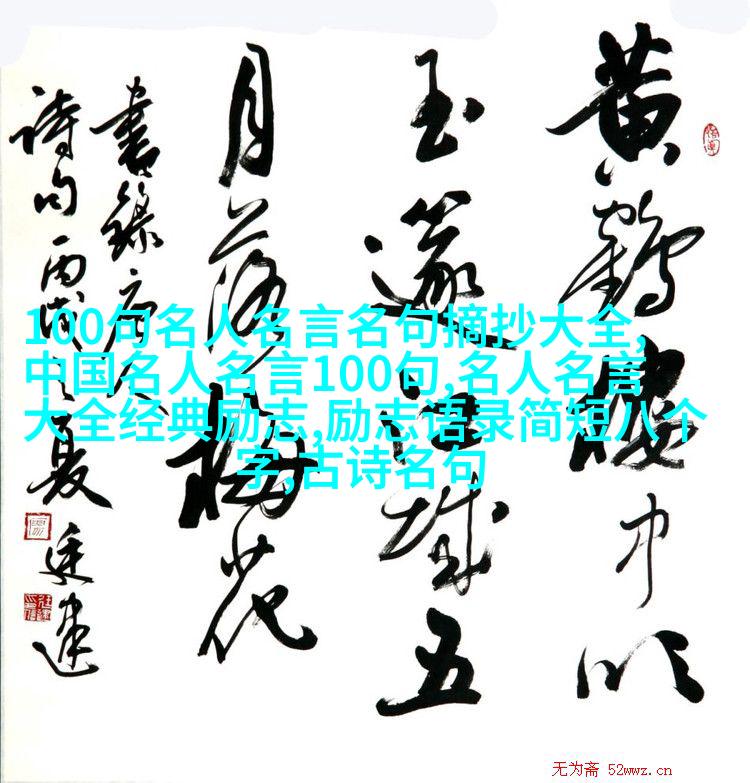 黄鶴樓中吹
玉篴江城五
月落梅花
書録唐人
詩句丙戌之夏廷建
100句名人名言名句摘抄大全,
中国名人名言100句,名人名言
大全经典励志,励志语录简短八个
字,古诗名句
无为斋 52wwz.cn